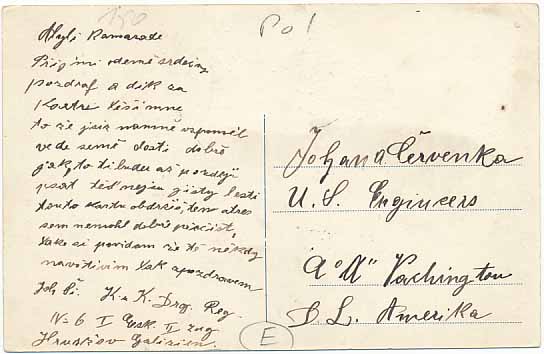 150
Pol
Mylí Kamaráde
Přijmi odemě srdečný
pozdraf a dík za
Kartu těší mne
to že jsis namně vspomněl
vede semě dosti dobře
jak, to ti budu až pozdeji
psat teď nejsu jistý lesti
touto kartu obdržíš, ten atres
sem nemohl dobře přečíst,
tako si povidam že tě někdy
navštivím tak spozdravem
Joh Ši. K.u.K. Drg. Reg.
N=6 I Esk. II zug
Hruszów Galizien.
Johan a Červenka
U. S. Engineers
Vachington
Amerika
E